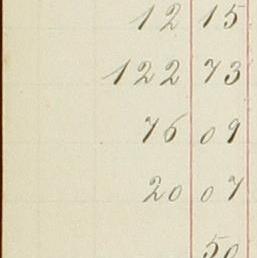 12 15
122 73
76 09
20 07
50